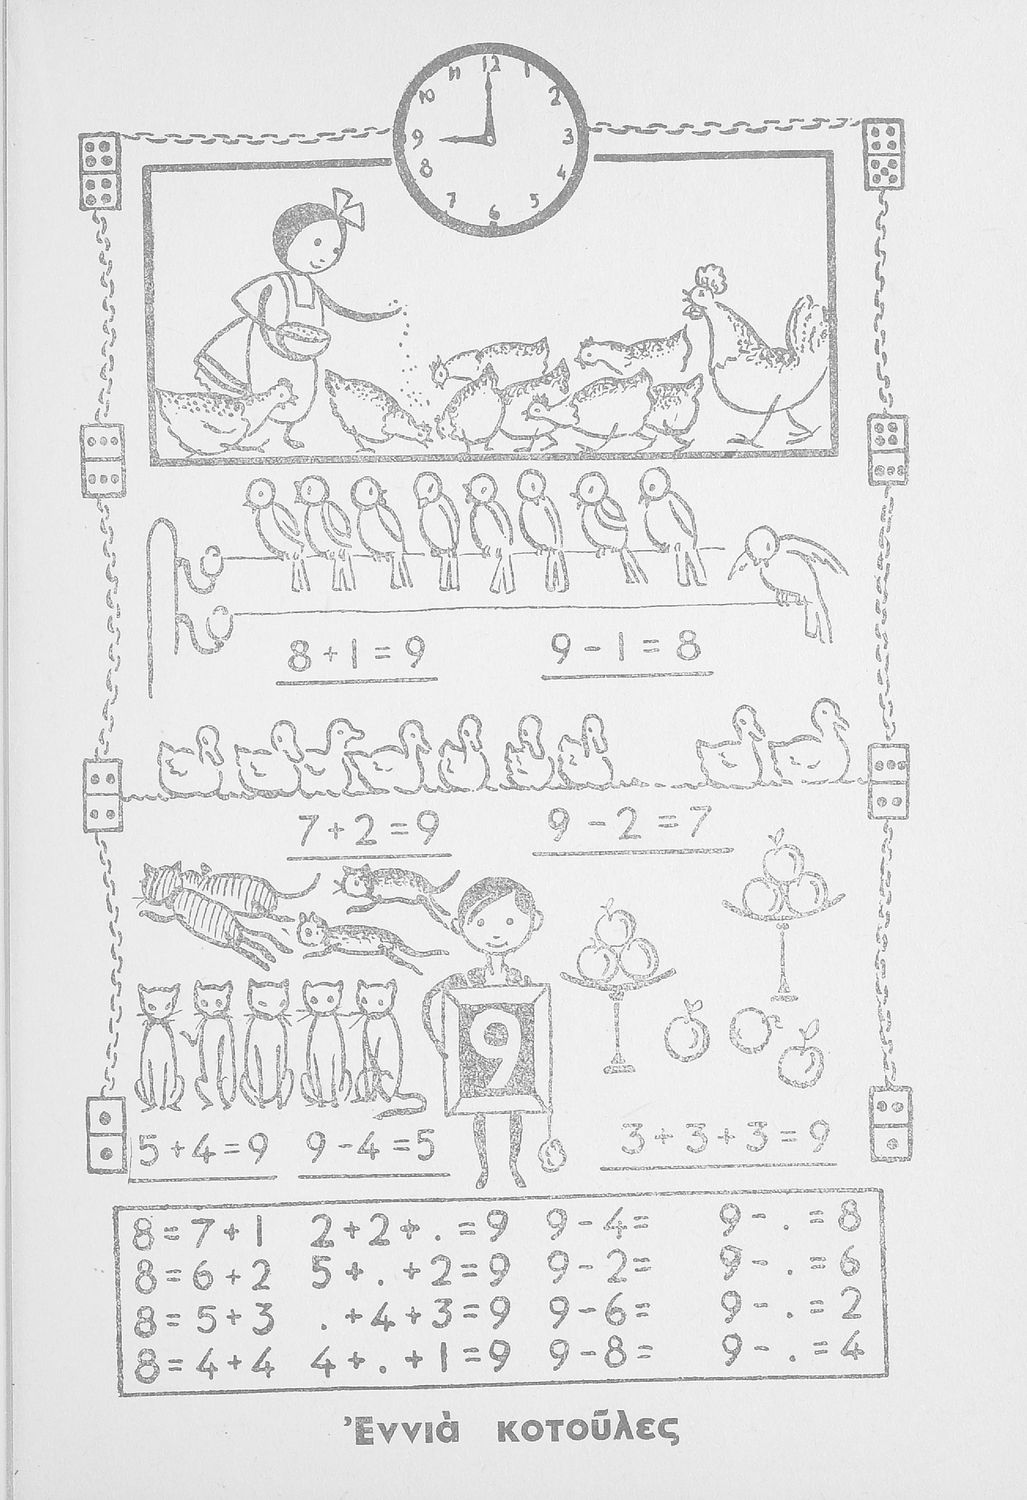 11 12 1
10 2
9 3
8 4
7 6 5
8+1=9 9-1=8
7+2=9 9-2=7
9
5+4=9 9-4=5 3+3+3=9
8=7+1 2+2+.=9 9-4= 9-.=8
8=6+2 5+.+2=9 9-2= 9-.=6
8=5+3 .+4+3=9 9-6= 9-.=2
8=4+4 4+.+1=9 9-8= 9-.=4
Ἐννιὰ κοτοῦλες